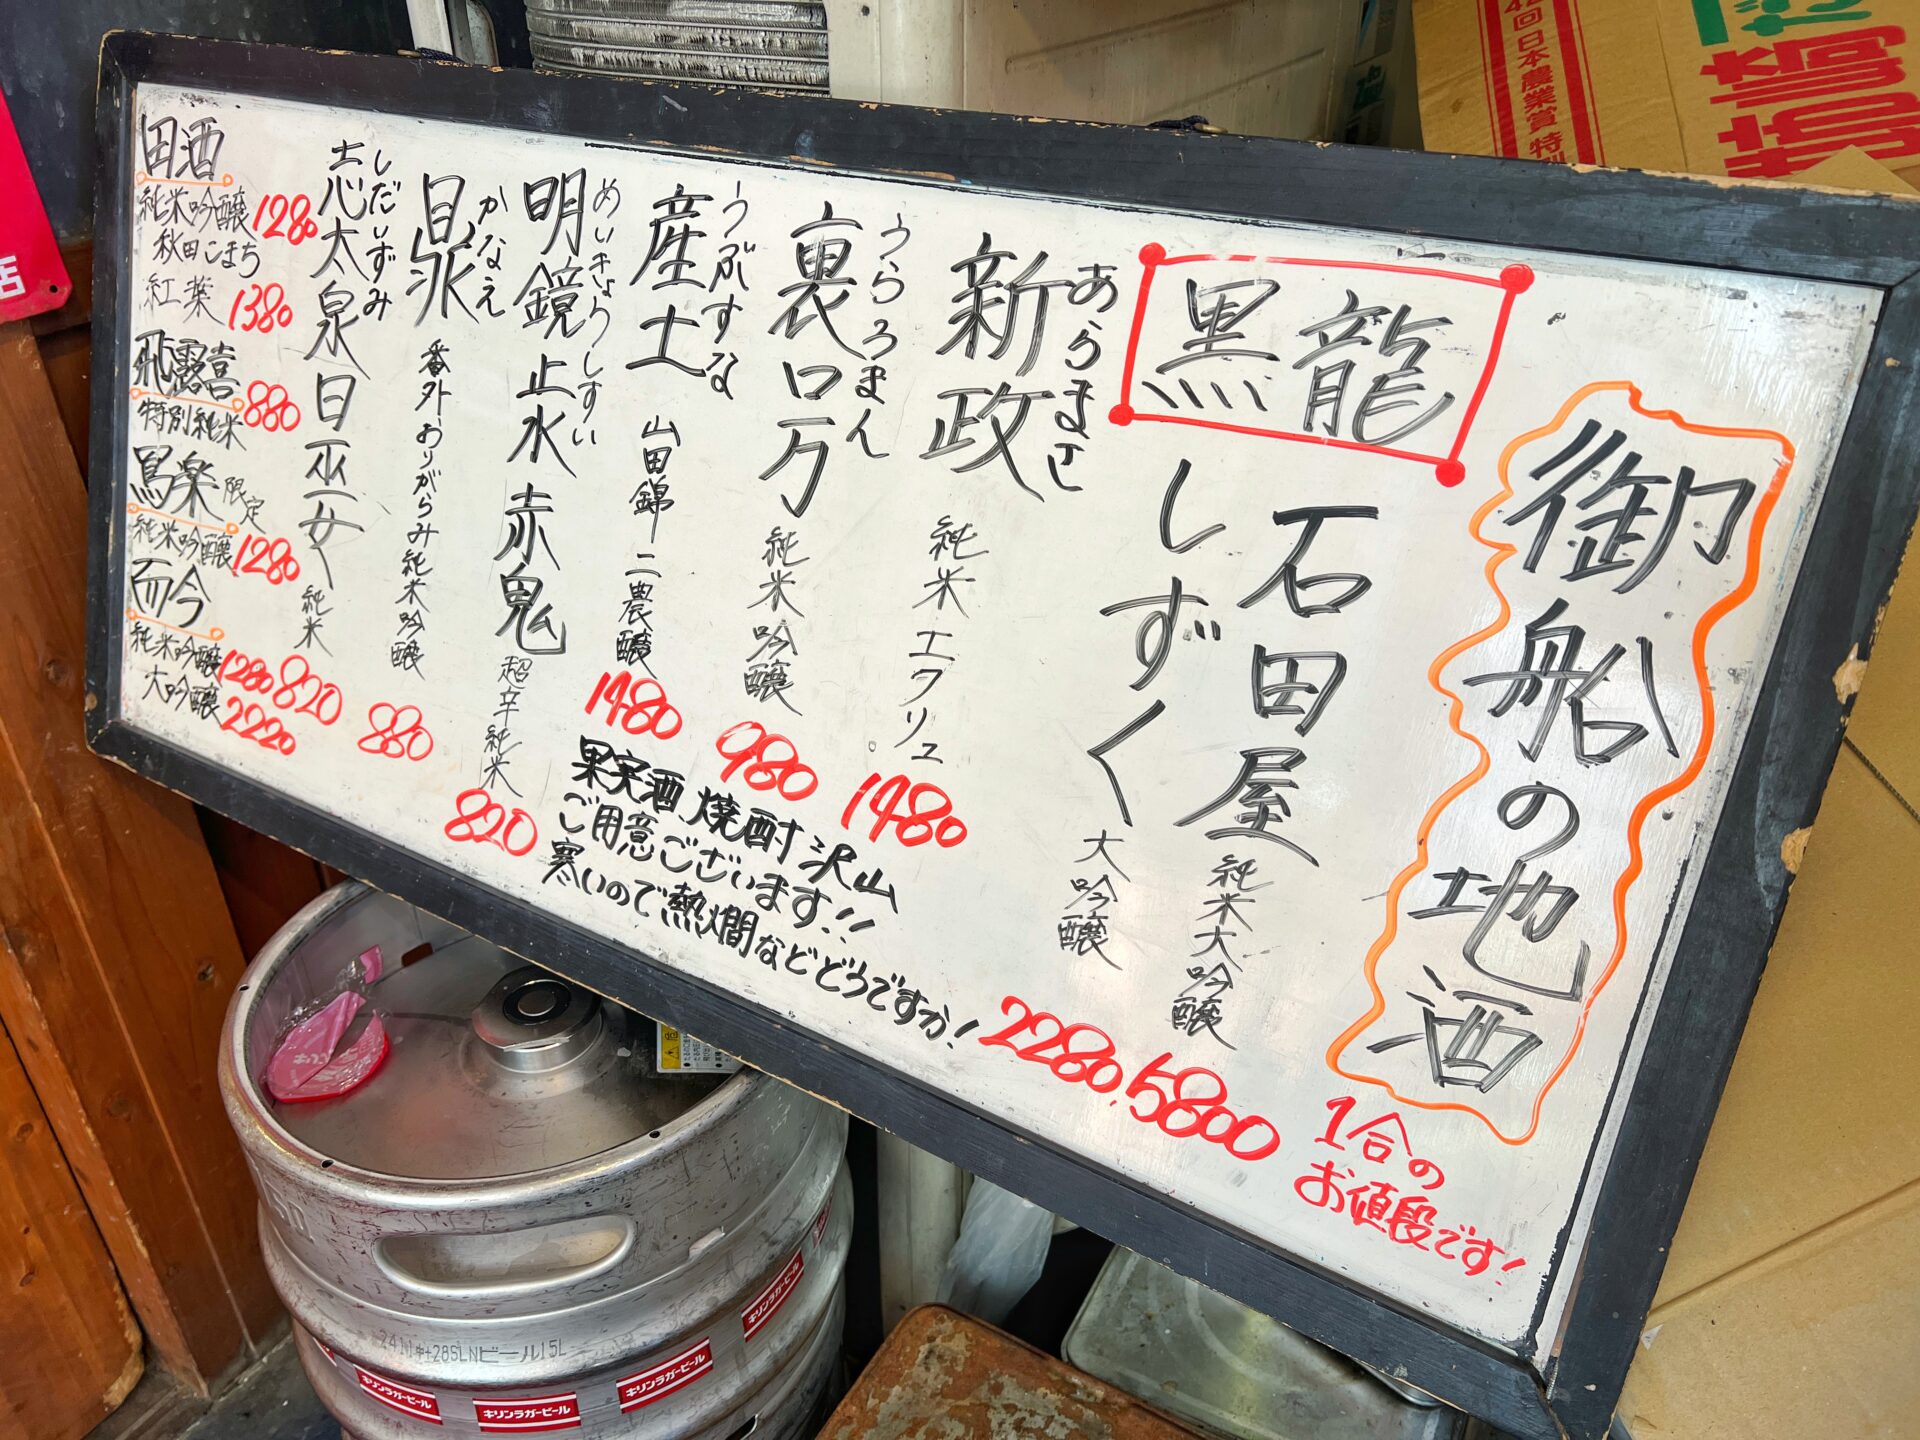 御船の地酒
1合の
お値段です!
黒龍
石田屋 純米大吟醸 5800
しずく 大吟醸 2280
あらまさ
新政 純米 エクリュ 1480
うらろまん
裏ロ万 純米吟醸 980
うぶすな
産土 山田錦 二農醸 1480
めいきょうしすい
明鏡止水 赤鬼 超辛純米 820
かなえ
鼎 番外おりがらみ 純米吟醸 880
しだいずみ
志太泉 日巫女 純米 820
田酒
純米吟醸 1280
秋田こまち
紅葉 1380
飛露喜
特別純米 880
寫楽 限定
純米吟醸 1280
而今
純米吟醸 1280
大吟醸 2220
果実酒、焼酎沢山
ご用意ございます!!
寒いので熱燗などどうですか!
キリンラガービール
キリンラガービール
キリンラガービール
キリンラガービール
ビール15L
42回日本農業賞 特別
店